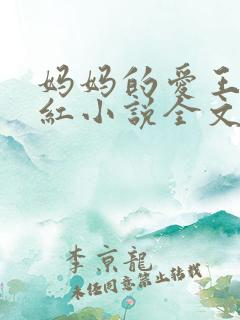 妈妈的爱王
红小说全文
李京龍
未经同意禁止转载